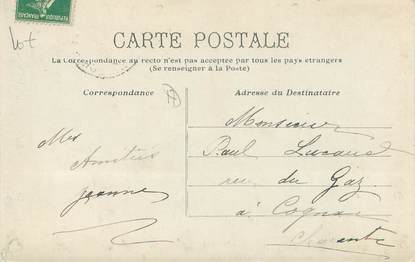 lot
CARTE POSTALE
La Correspondance au recto n'est pas acceptée par tous les pays étrangers
(Se renseigner à la Poste)
Correspondance
Adresse du Destinataire
Mes
Amitiés
Jeanne
Monsieur
Paul Lucaud
rue du Gaz
à Cognac
Charente